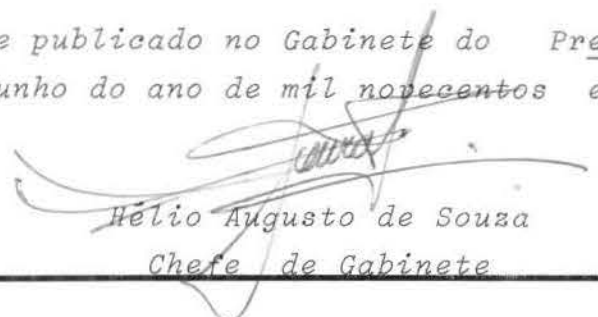 e publicado no Gabinete do Pre
unho do ano de mil novecentos e
Hélio Augusto de Souza
Chefe de Gabinete